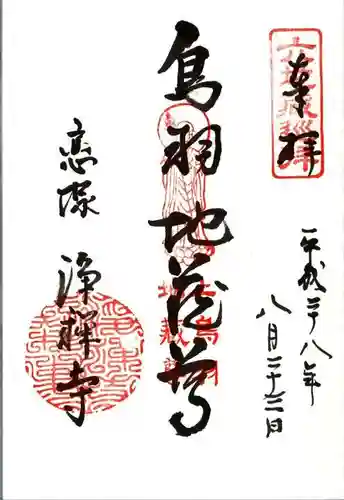 奉拝
平成二十八年
八月二十三日
鳥羽地蔵尊
恋塚
浄禅寺